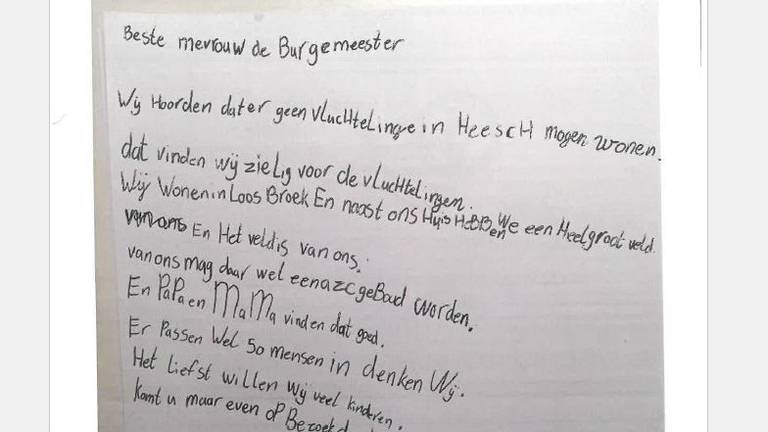 Beste mevrouw de Burgemeester
Wij Hoorden dater geen VLucHteLinge in HeescH mogen wonen.
dat vinden wij zieLig voor de vLucHteLingen.
Wij WoneninLoosBroek En naast ons Huis HeBBen We een HeeLgroot veld.
van ons En Het veldis van ons.
van ons mag daar wel eenazcgeBoud worden.
En PaPa en MaMa vinden dat goed.
Er Passen Wel 50 mensen in denken Wij.
Het Liefst willen Wij veel kinderen.
Komt u maar even oP Bezoek